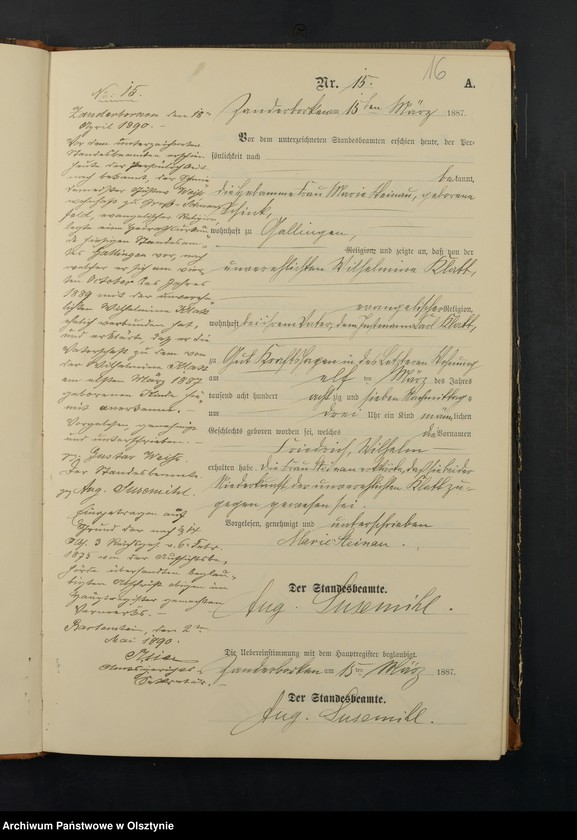 16
Nr. 15. A.
Zanderborken am 15ten März 1887.
Vor dem unterzeichneten Standesbeamten erschien heute, der Per-
sönlichkeit nach
bekannt,
die Hebamme Frau Marie Steinau, geborene
Schink,
wohnhaft zu Gallingen,
Religion, und zeigte an, daß von der
unverehelichten Wilhelmine Klatt,
evangelischer Religion,
wohnhaft bei ihrem Vater, dem Instmann Carl Klatt,
zu Gut in des Letzteren Wohnung
am elf ten März des Jahres
tausend acht hundert achtzig und sieben Nachmittags
um drei Uhr ein Kind männlichen
Geschlechts geboren worden sei, welches die Vornamen
Friedrich, Wilhelm
erhalten habe. Die Frau Steinau erklärte, daß sie bei der
Niederkunft der unverehelichten Klatt zu-
gegen gewesen sei.
Vorgelesen, genehmigt und unterschrieben
Marie Steinau.
Der Standesbeamte.
Aug. Susemihl.
Die Uebereinstimmung mit dem Hauptregister beglaubigt.
Zanderborken am 15ten März 1887.
Der Standesbeamte.
Aug. Susemihl.
No: 15.
Zanderborken den 18ten
April 1890. -
Vor dem unterzeichneten
Standesbeamten erschien
heute der Persönlichkeit
nach bekannt, der Schmie-
demeister Gustav
wohnhaft zu Groß-Schwans-
feld, evangelischer Religion
legte eine Heirathsurkun-
de hiesigen Standesam-
tes Gallingen vor, nach
welcher er sich am vier-
ten October des Jahres
1889 mit der unvereh-
lichten Wilhelmine Klatt
ehelich verbunden hat,
und erklärte daß er die
Vaterschaft zu dem von
der Wilhelmine Klatt
am elften März 1887
geborenen Kinde hier-
mit anerkenne. -
Vorgelesen, genehmigt
und unterschrieben. -
gz. Gustav
Der Standesbeamte.
gz. Aug. Susemihl.
Eingetragen auf
Grund der nach § 14
Abs. 3 Reichsges. v. 6. Febr.
1875 von der Aufsichtsbe-
hörde übersandten beglau-
bigten Abschrift obigen im
Hauptregister gemachten
Vermerks. -
Bartenstein, den 2ten
Mai 1890.
Amtsgerichts-
Sekretär. -
Archiwum Państwowe w Olsztynie